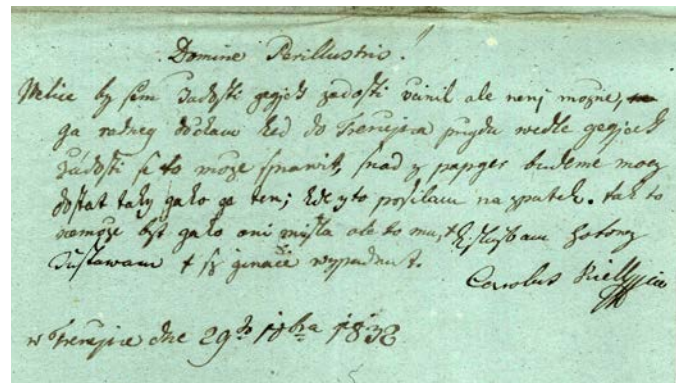 Domine Perillustris!
Welice by sem Žadosti gegich zadosti vcinil ale nenj možne,
ga radneg dočkam ked do Trencjna pugdu wedle gegich
žádosti se to može sprawit, snad y papger budeme mocy
dostat taky gako ge ten; kde yto posilam na zpatek. tak to
nemože byt gako oni mysla ale to mu,
Zustawam ginače wypadnut.
Carolus
w Trencjne dne 29. 10bra 1832